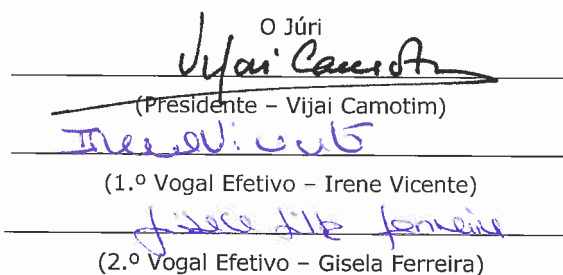 O Júri
Vijai Camotim
(Presidente – Vijai Camotim)
Irene Vicente
(1.º Vogal Efetivo – Irene Vicente)
(2.º Vogal Efetivo – Gisela Ferreira)